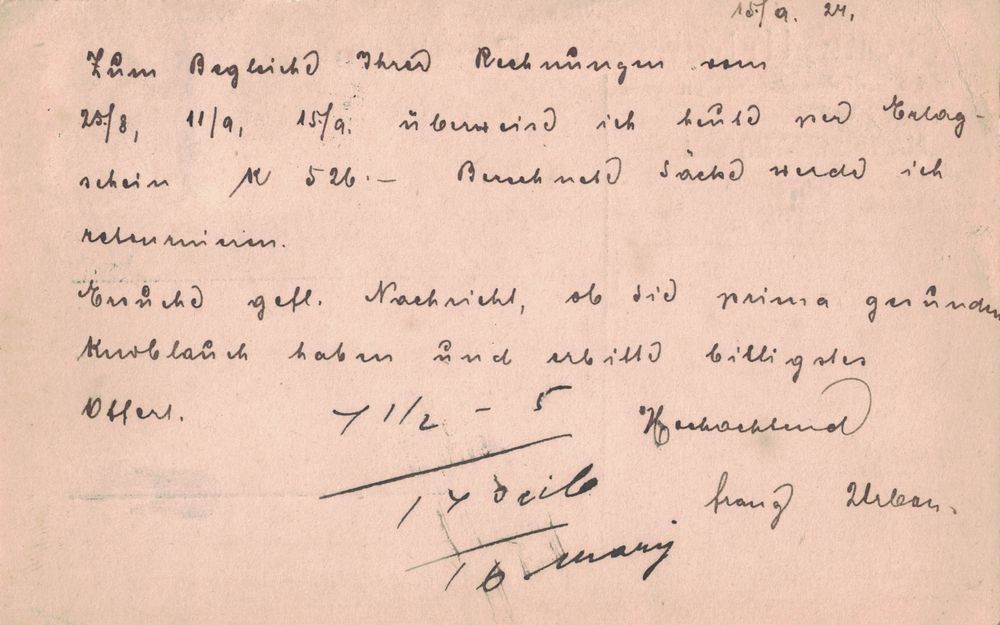 15./9. 24.
Zum Begleiche Ihrer Rechnungen vom
25./8, 11/9, 15./9. überweise ich heute per Erlag-
schein K 526.— Berechnete Säcke werde ich
retournieren.
Ersuche gefl. Nachricht, ob Sie prima gesunden
Knoblauch haben und erbitte billigstes
Offert.
7 1/2 - 5
Hochachtend
17
Franz Urban.
16